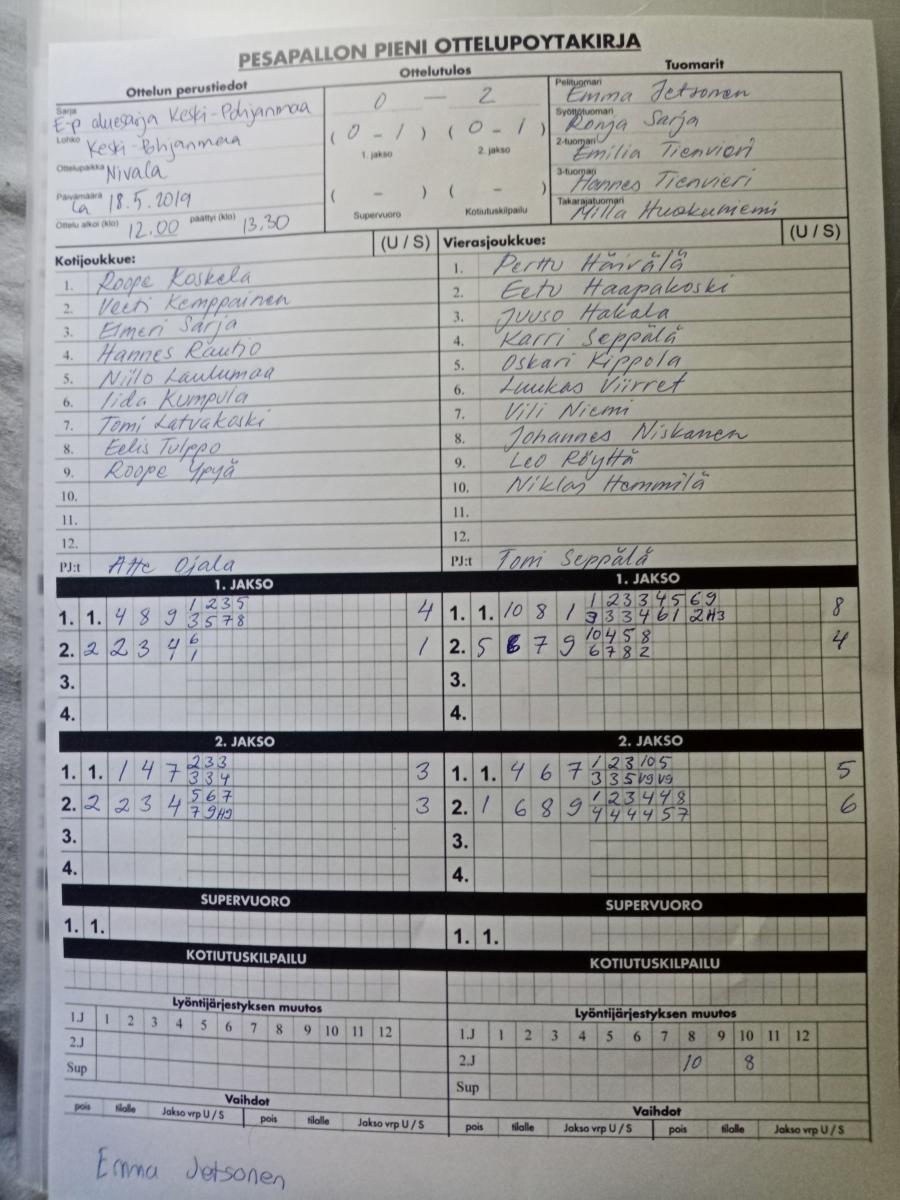 PESAPALLON PIENI OTTELUPOYTAKIRJA
Ottelun perustiedot
Sarja
E-p aluesarja Keski-Pohjanmaa
Lohko
Keski-Pohjanmaa
Ottelupaikka
Nivala
Päivämäärä
La 18.5.2019
Ottelu alkoi (klo) 12.00 päättyi (klo) 13.30
Ottelutulos
0 — 2
( 0 - 1 ) ( 0 - 1 )
1. jakso 2. jakso
( - ) ( - )
Supervuoro Kotiutuskilpailu
Tuomarit
Pelituomari
Emma Jetsonen
Syöttötuomari
Ronja Sarja
2-tuomari
Emilia Tienvieri
3-tuomari
Hannes Tienvieri
Takarajatuomari
Milla Huokuniemi
Kotijoukkue: (U / S)
1. Roope Koskela
2. Veeti Kemppainen
3. Elmeri Sarja
4. Hannes Rautio
5. Niilo Laulumaa
6. Iida Kumpula
7. Tomi Latvakoski
8. Eelis Tulppo
9. Roope Ypyä
10.
11.
12.
PJ:t Atte Ojala
Vierasjoukkue: (U / S)
1. Perttu Häivälä
2. Eetu Haapakoski
3. Juuso Hakala
4. Karri Seppälä
5. Oskari Kippola
6. Luukas Viirret
7. Vili Niemi
8. Johannes Niskanen
9. Leo Röyttä
10. Niklas Hemmilä
11.
12.
PJ:t Tomi Seppälä
1. JAKSO
1. 1. 4 8 9 1 2 3 5 4
3 5 7 8
2. 2 2 3 4 6 1
1
3.
4.
1. JAKSO
1. 1. 10 8 1 1 2 3 3 4 5 6 9 8
3 3 3 4 6 1 2 H3
2. 5 6 7 9 10 4 5 8 4
6 7 8 2
3.
4.
2. JAKSO
1. 1. 1 4 7 2 3 3 3
3 3 4
2. 2 2 3 4 5 6 7 3
7 9 H9
3.
4.
2. JAKSO
1. 1. 4 6 7 1 2 3 10 5 5
3 3 5 V9 V9
2. 1 6 8 9 1 2 3 4 4 8 6
4 4 4 4 5 7
3.
4.
SUPERVUORO
1. 1.
SUPERVUORO
1. 1.
KOTIUTUSKILPAILU
KOTIUTUSKILPAILU
Lyöntijärjestyksen muutos
1.J 1 2 3 4 5 6 7 8 9 10 11 12
2.J
Sup
Lyöntijärjestyksen muutos
1.J 1 2 3 4 5 6 7 8 9 10 11 12
2.J 10 8
Sup
Vaihdot
pois tilalle Jakso vrp U / S pois tilalle Jakso vrp U / S
Vaihdot
pois tilalle Jakso vrp U / S pois tilalle Jakso vrp U / S
Emma Jetsonen